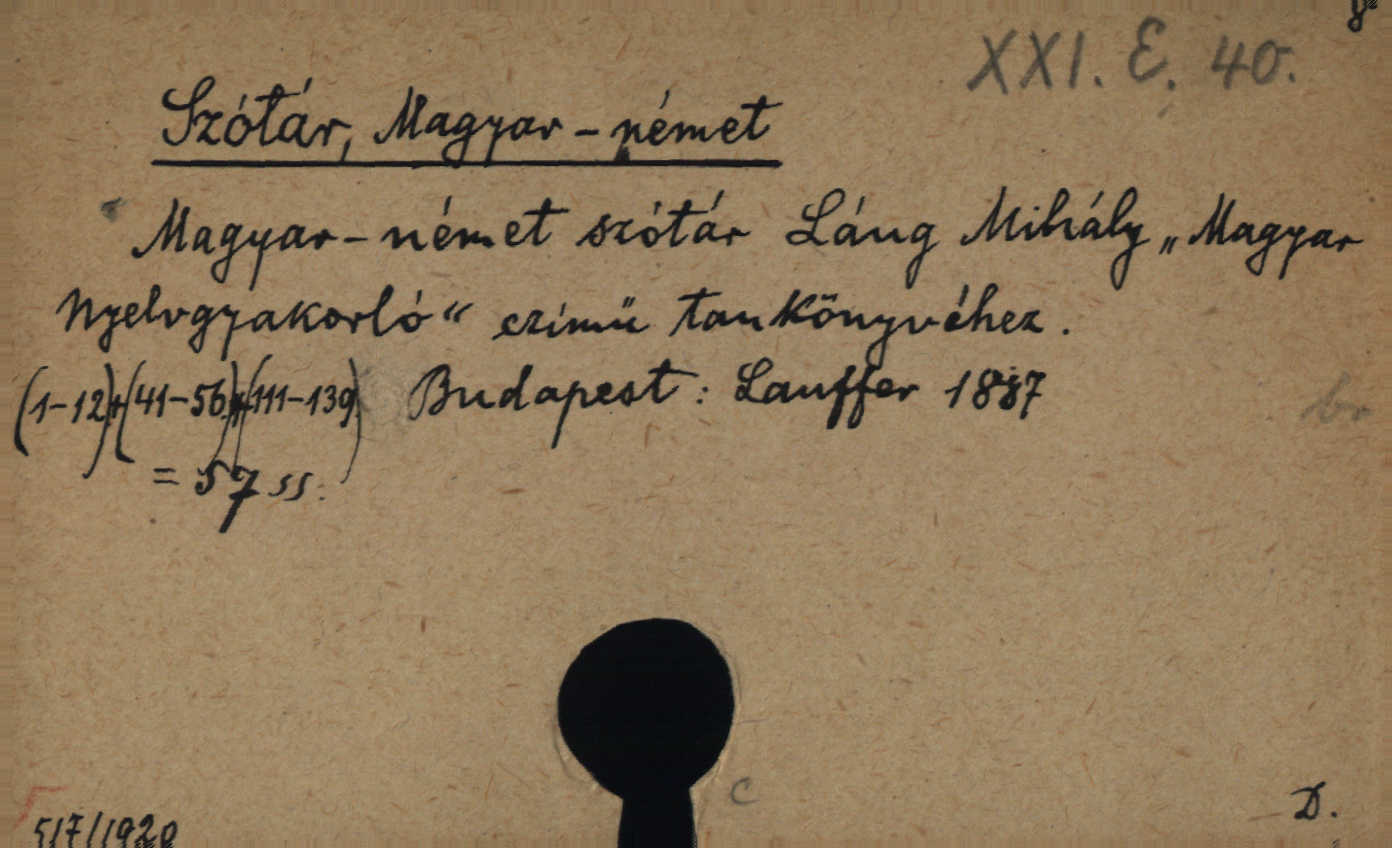 8°
XXI. E. 40.
Szótár, Magyar-német
Magyar-német szótár Láng Mihály „Magyar
Nyelvgyakorló“ czimü tankönyvéhez.
(1-12)+(41-56)+(111-139) Budapest: Lauffer 1887
= 57 ss.
br
c
D.
517/1920